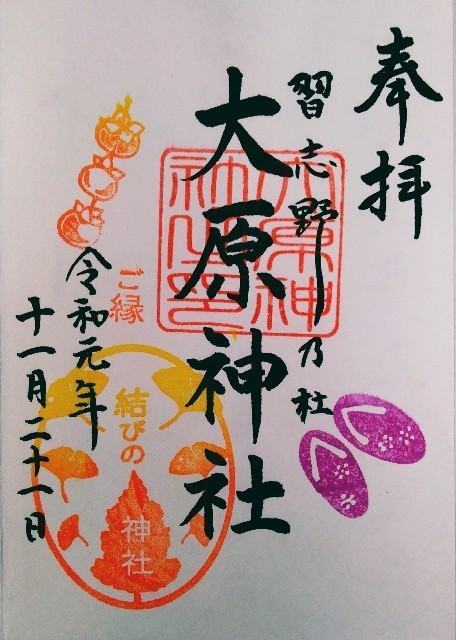 奉拝
習志野乃杜
大原神社
大原神社之印
令和元年
十一月二十一日
ご縁
結びの
神社